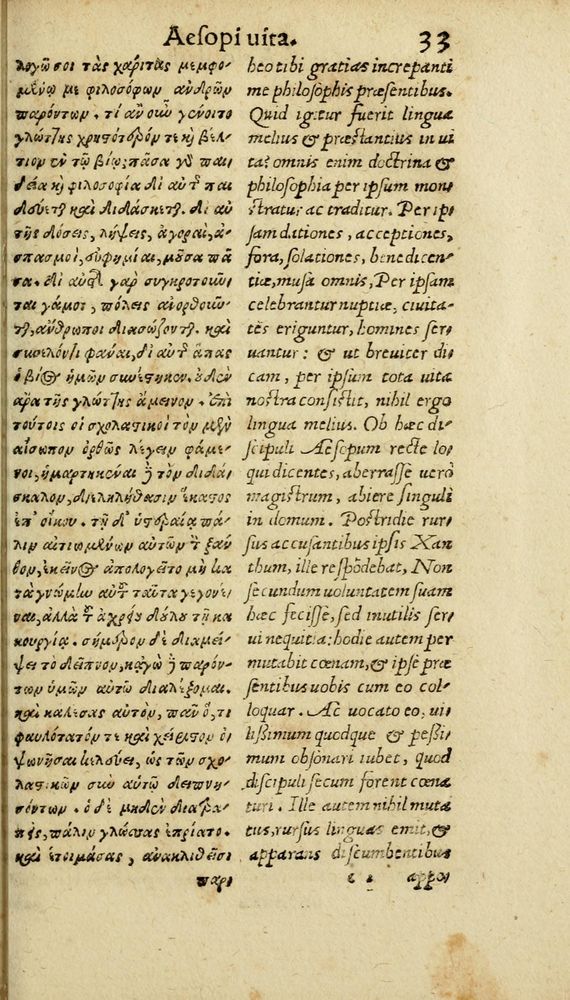 Aesopi uita. 33
λογῶσοι τὰς χάριτας μεμφο-
μένῳ με φιλοσόφων ἀνδρῶν
παρόντων. τί ἂν οὖν γένοιτο
γλώττης χρηστότερόν τε καὶ βέλ-
τιον ἐν τῷ βίῳ; πᾶσα γὰρ παι-
δεία καὶ φιλοσοφία δι' αὐτῆς παι
δεύεται καὶ διδάσκεται. δι' αὐ
τῆς δόσεις, λήψεις, ἀγοραὶ, ἀ-
σπασμοὶ, εὐφημίαι, μοῦσα πᾶ
σα. δι' αὐτῆς γὰρ συγκροτοῦν-
ται γάμοι, πόλεις ἀνορθοῦν-
ται, ἄνθρωποι διασώζονται. καὶ
συνελόντι φάναι, δι' αὐτῆς ἅπας
ὁ βίος ἡμῶν συνέστηκεν. οὐδὲν
ἄρα τῆς γλώττης ἄμεινον. ἐπὶ
τούτοις οἱ σχολαστικοὶ τὸν μὲν
αἴσωπον ὀρθῶς λέγειν φάμε-
νοι, ἡμαρτηκέναι δὲ τὸν διδά-
σκαλον, διεληλύθασιν ἕκαστος
ἐπ' οἴκου. τῇ δ' ὑστεραίᾳ πά-
λιν αἰτιωμένων αὐτῶν τὸν ξάν
θον, ἐκεῖνος ἀπολογεῖτο μὴ κα
τὰ γνώμην αὐτοῦ ταῦτα γεγονέ-
ναι, ἀλλὰ τοῦ ἀχρείου δούλου τῇ κα
κουργίᾳ. σήμερον δὲ διαμεί-
ψει τὸ δεῖπνον, κἀγὼ δὲ παρόν-
των ὑμῶν αὐτῷ διαλέξομαι.
καὶ καλέσας αὐτὸν, πᾶν ὅ,τι
φαυλότατόν τε καὶ χείριστον ὀ
ψωνῆσαι κελεύει, ὡς τῶν σχο-
λαστικῶν σὺν αὐτῷ δειπνη-
σόντων. ὁ δὲ μηδὲν διατρα-
πεὶς, πάλιν γλώσσας ἐπρίατο.
καὶ ἑτοιμάσας, ἀνακλιθεῖσι
παρέ
heo tibi gratias increpanti
me philosophis præsentibus.
Quid igitur fuerit lingua
melius & præstantius in ui
ta? omnis enim doctrina &
philosophia per ipsum mon
stratur ac traditur. Per ip-
sam dationes, acceptiones,
fora, solationes, benedicen-
tiæ, musa omnis, Per ipsam
celebrantur nuptiæ, ciuita-
tes eriguntur, homines ser
uantur: & ut breuiter di
cam, per ipsum tota uita
nostra consistit, nihil ergo
lingua melius. Ob hæc di-
scipuli Aesopum recte lo-
qui dicentes, aberrasse uero
magistrum, abiere singuli
in domum. Postridie rur-
sus accusantibus ipsis Xan
thum, ille respõdebat, Non
secundum uoluntatem suam
hæc fecisse, sed inutilis ser-
ui nequitia: hodie autem per
mutabit cœnam, & ipse præ
sentibus uobis cum eo col-
loquar. Ac uocato eo, ui-
lissimum quodque & pessi-
mum obsonari iubet, quod
discipuli secum forent cœna
turi. Ille autem nihil muta
tus, rursus linguas emit, &
apparans discumbentibus
c 2 appo